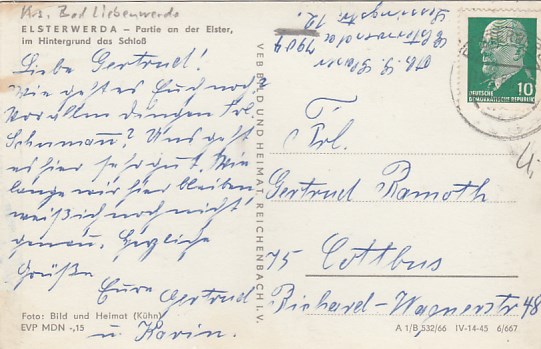 Krs. Bad Liebenwerda
ELSTERWERDA – Partie an der Elster,
im Hintergrund das Schloß
Liebe Gertrud!
Wie geht es Euch noch?
Vor allen dingen Frl.
Schumann? Uns geht
es hier sehr gut. Wie
lange wir hier bleiben
weiß ich noch nicht
genau. Herzliche
Grüße
Eure Gertrud
u. Karin.
Foto: Bild und Heimat (Kühn)
EVP MDN -,15
VEB BILD UND HEIMAT, REICHENBACH I. V.
Abs. G.
7904
Elsterwerda
12.
DEUTSCHE
DEMOKRATISCHE REPUBLIK
10
4,
Frl.
Gertrud Ramoth
75 Cottbus
Richard-Wagnerstr 48
A 1/B 532/66 IV-14-45 6/667